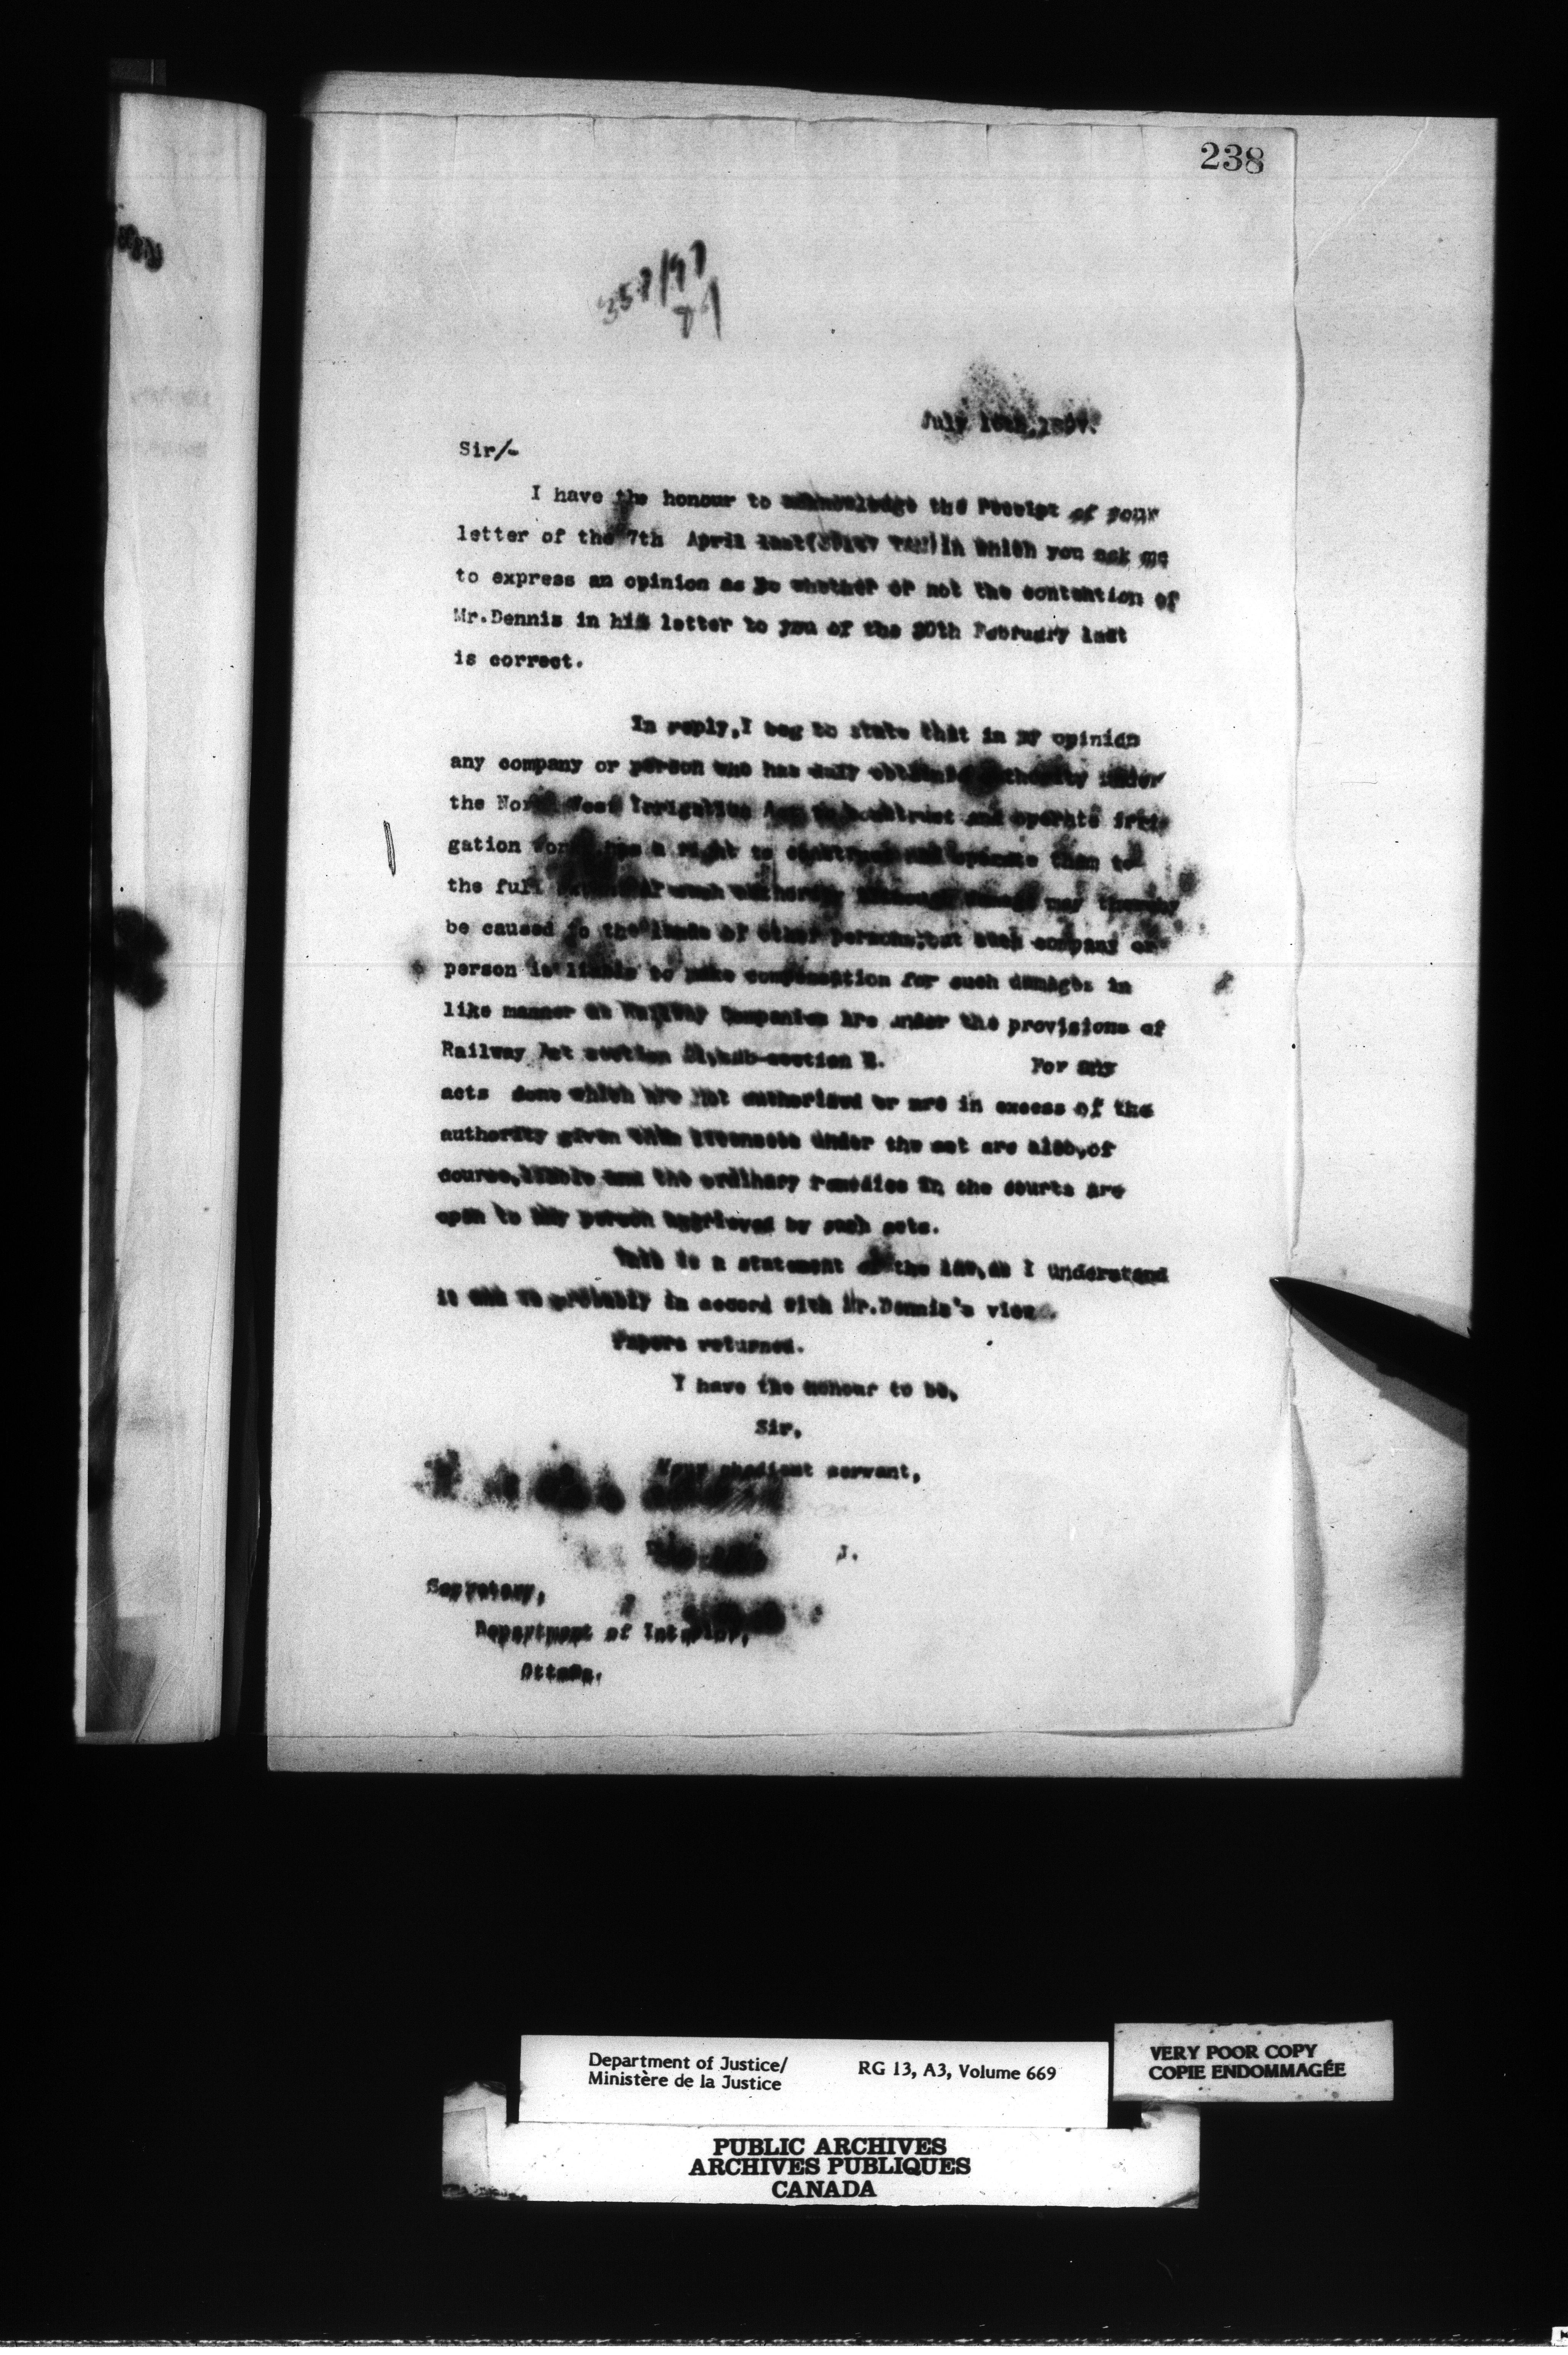 238
July
Sir/-
I have the honour to acknowledge the receipt of your
letter of the 7th April last in which you ask me
to express an opinion as to whether or not the contention of
Mr.Dennis in his letter to you of the February last
is correct.
In reply,I beg to state that in my opinion
any company or person who has duly authority under
the North West Irrigation Act to construct and operate irri-
gation has a right to construct and operate them to
the full of such authority may thereby
be caused to the lands of other persons,but such company or
person is liable to make compensation for such damages in
like manner as Railway Companies are under the provisions of
Railway Act section sub-section For any
acts done which are not authorised or are in excess of the
authority given under the act are also,of
course,liable and the ordinary remedies in the courts are
open to any person aggrieved by such acts.
This is a statement of the law,as I understand
it and is probably in accord with Mr.Dennis's view.
Papers returned.
I have the honour to be,
Sir,
Your obedient servant,
J.
Secretary,
Department of Interior,
Ottawa.
Department of Justice/
Ministère de la Justice
RG 13, A3, Volume 669
VERY POOR COPY
COPIE ENDOMMAGÉE
PUBLIC ARCHIVES
ARCHIVES PUBLIQUES
CANADA